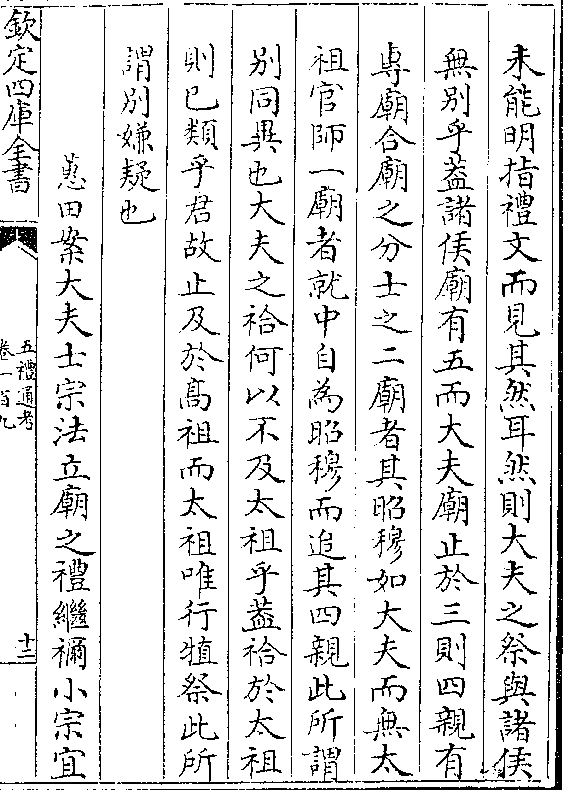 未能明指禮文而見其然耳然則大夫之祭與諸侯
無别乎葢諸侯廟有五而大夫廟止於三則四親有
専廟合廟之分士之二廟者其昭穆如大夫而無太
祖官師一廟者就中自為昭穆而追其四親此所謂
别同異也大夫之祫何以不及太祖乎葢祫於太祖
則已類乎君故止及於髙祖而太祖唯行犆祭此所
謂别嫌疑也
蕙田案大夫士宗法立廟之禮繼禰小宗宜
欽定四庫全書
五禮通考
卷一百九
十二